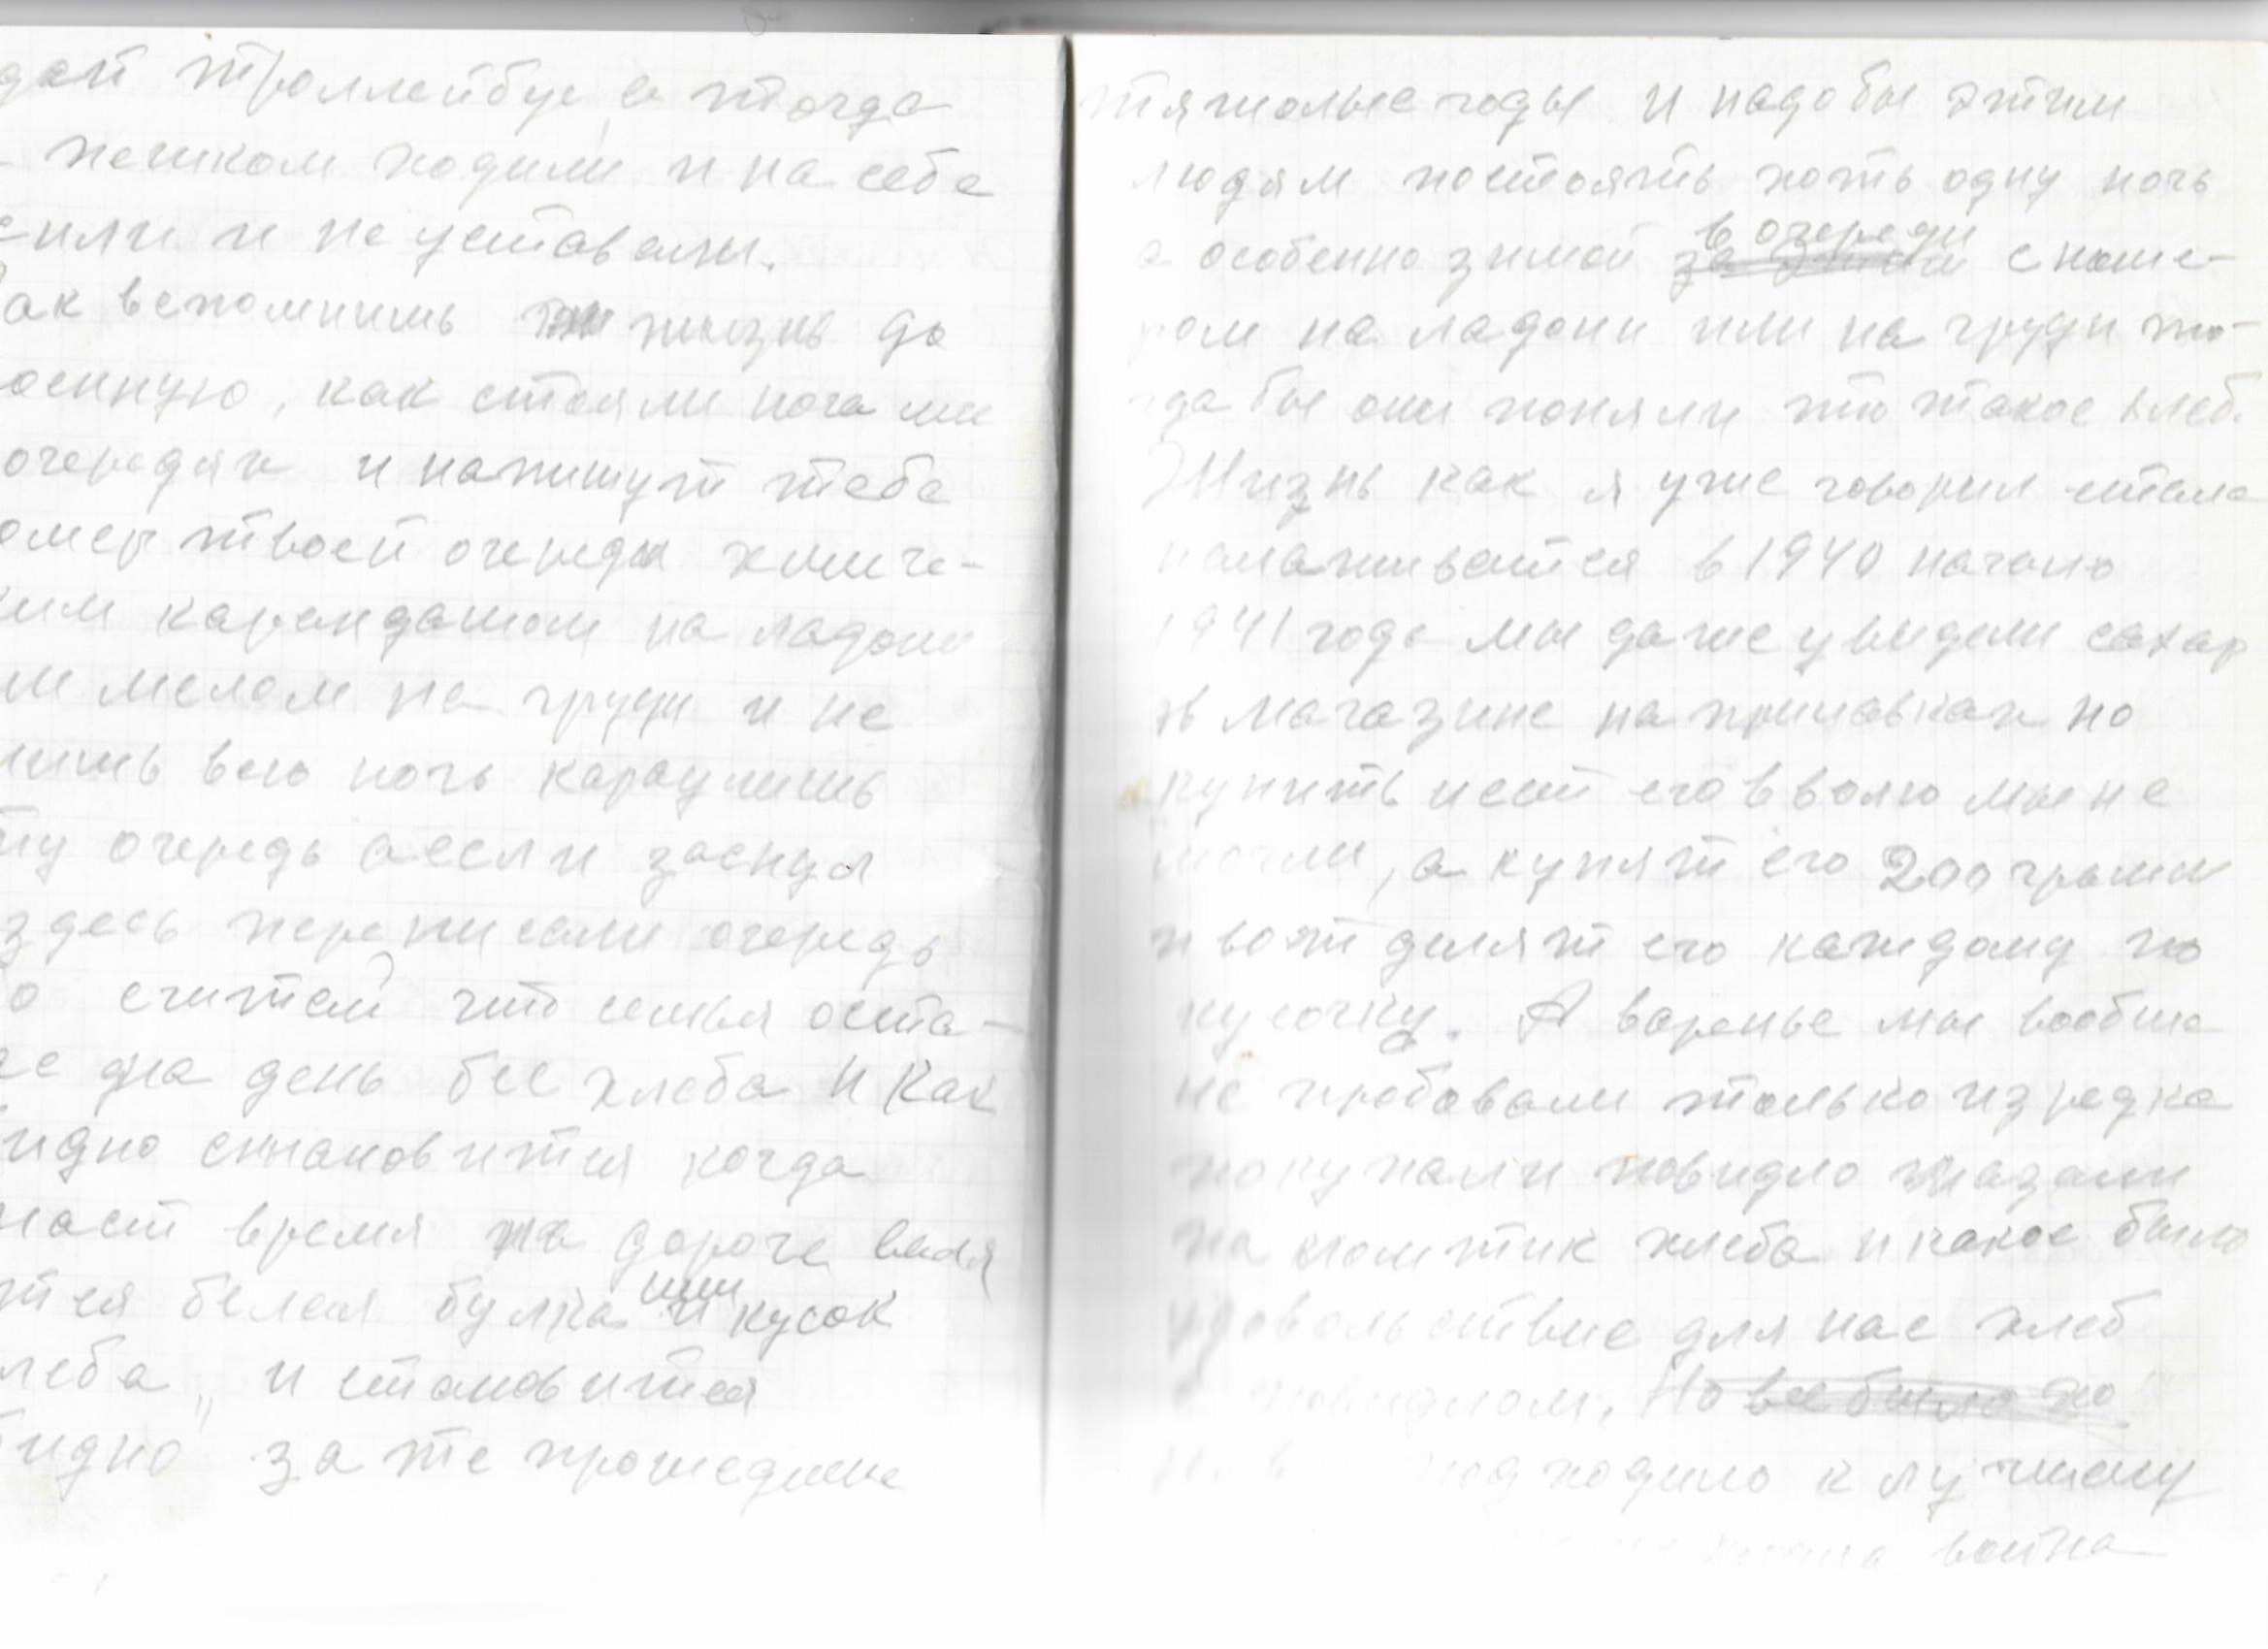 дай троллейбус, а тогда
пешком ходили и на себе
сили и не уставали.
ак вспомнишь жизнь до
оенную, как стояли ночами
очередях и напишут тебе
омер твоей очереди хмиче-
ким карандашом на ладони
ли мелом на груди и не
пишь всю ночь караулишь
ту очередь а если заснул
здесь переписали очередь
о считай что семья оста-
ее на день бес хлеба И Как
идно становится когда
наст время на дороге валя
тся белая булка или кусок
леба, и становится
бидно за те прошедшие
тяжолые годы и надо бы этим
людям постоять хоть одну ночь
а особенно зимой в очереди с номе-
ром на ладони или на груди то-
гда бы они поняли что такое хлеб.
Жизнь как я уже говорил стала
налаживается в 1940 начало
1941 года мы даже увидели сахар
в магазине на прилавках но
купить и ест его вволю мы не
могли, а купят его 200 грамм
и вот делят его каждому по
кусочку. А варенье мы вообше
не пробовали только изредка
покупали повидло мазали
на ломтик хлеба и какое было
удовольствие для нас хлеб
повидлом. Но все было по
подходило к лучшему
война